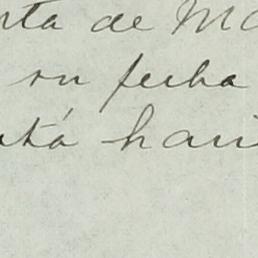 rta de Ma
su fecha
stá hari